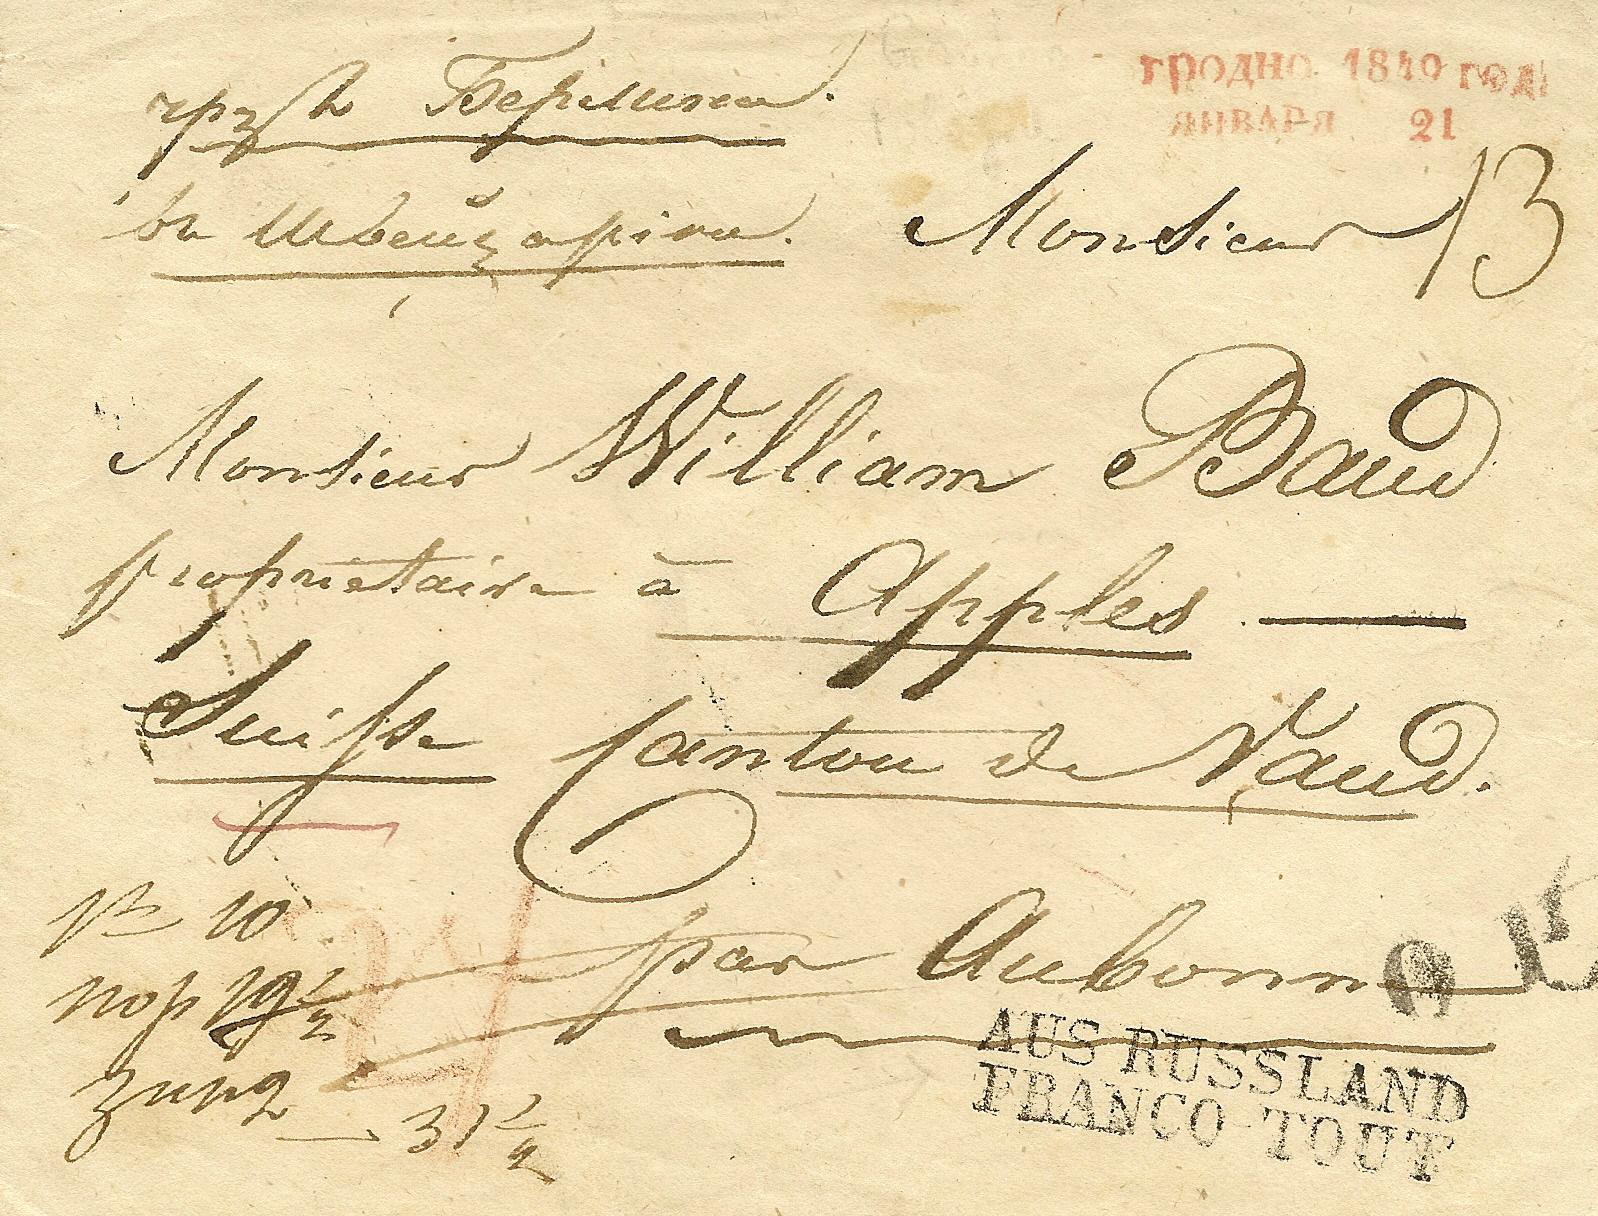 чрзъ Берлинъ.
гродно 1840 год
января 21
въ Швейцарію.
Monsieur
13
Monsieur William Baud
propriétaire à Apples
Suisse Canton de Vaud.
par Aubonne
№ 10
пор 19 1/2
31 1/2
AUS RUSSLAND
FRANCO TOUT